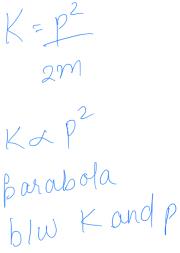 K = p²/2m
K ∝ p²
Parabola
b/w K and p